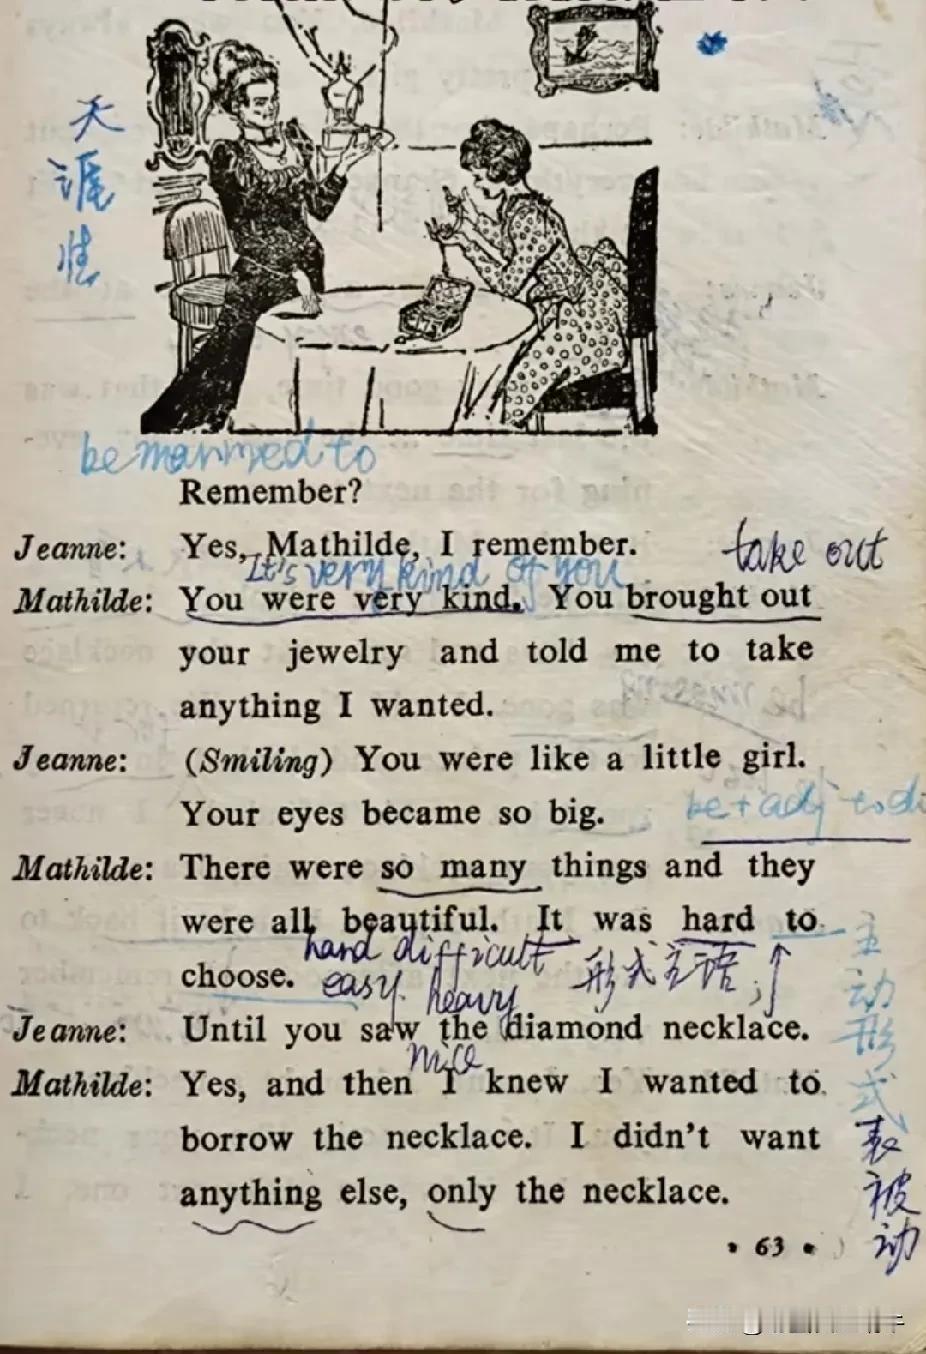 天
涯
be marrned to
Remember?
Jeanne: Yes, Mathilde, I remember.
take out
It's very kind of you
Mathilde: You were very kind. You brought out
your jewelry and told me to take
anything I wanted.
Jeanne: (Smiling) You were like a little girl.
Your eyes became so big.
be + adj to do
Mathilde: There were so many things and they
were all beautiful. It was hard to
choose.
hard difficult
easy heavy
形式主语
主动形式表被动
Jeanne: Until you saw the diamond necklace.
nice
Mathilde: Yes, and then I knew I wanted to
borrow the necklace. I didn't want
anything else, only the necklace.
• 63 •